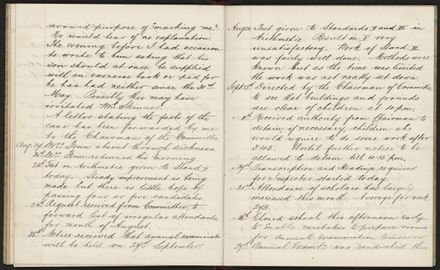 avowed purpose of "marking me."
He would hear of no explanation.
The evening before I had occasion
to write to him asking that his
son should at once be supplied
with an exercise book or pad for
he has had neither since the 30th
May. Possibly this may have
irritated Mr Skinner.
A letter stating the facts of the
case has been forwarded by me
to the Chairman of the Committee.
Aug. 19th Mrs absent through sickness
20th Mrs returned this morning
22nd Test in Arithmetic given to Stand. V
today. Steady improvement is being
made but there is little hope of
passing four or five candidates.
Request received from Committee to
forward list of irregular attendants
for month of August.
Notice received that Annual examination
will be held on 29th September.
Test given to Standards V and IV in
Arithmetic. Result in V very
unsatisfactory. Work of Stand. IV
was fairly well done. Methods were
known but as the time was limited
the work was not neatly set down.
Sept. Directed by the Chairman of Committee
to see that buildings and grounds
are clear of children at 3.10 p.m.
8th Received authority from Chairman to
detain, if necessary, children who
would require to do some work after
3.45. Until further notice to be
allowed to detain till 4.15 p.m.
Transcription and Readings required
for Inspector started today.
Attendance of scholars has largely
increased this month. Average for week
Closed school this afternoon early
to enable caretaker to prepare room
for Annual Examination tomorrow
29th Annual Exam was conducted this